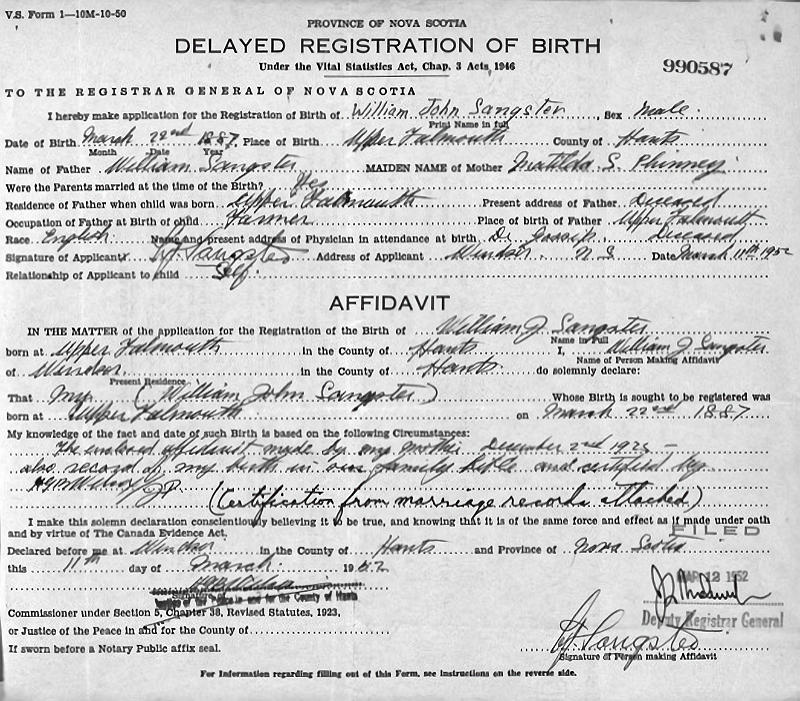 V.S. Form 1—10M-10-50
PROVINCE OF NOVA SCOTIA
DELAYED REGISTRATION OF BIRTH
Under the Vital Statistics Act, Chap. 3 Acts 1946
990587
TO THE REGISTRAR GENERAL OF NOVA SCOTIA
I hereby make application for the Registration of Birth of William John Sangster, Sex Male.
Print Name in full
Date of Birth March 22nd 1887 Place of Birth Upper Falmouth County of Hants
Month Date Year
Name of Father William Sangster MAIDEN NAME of Mother Matilda S. Phinney
Were the Parents married at the time of the Birth? Yes
Residence of Father when child was born Upper Falmouth Present address of Father Deceased
Occupation of Father at Birth of child Farmer Place of birth of Father Upper Falmouth
Race English Name and present address of Physician in attendance at birth Dr. Gossip. Deceased
Signature of Applicant W J. Sangster Address of Applicant Windsor N S Date March 11th 1952
Relationship of Applicant to child Self.
AFFIDAVIT
IN THE MATTER of the application for the Registration of the Birth of William J. Sangster
Name in Full
born at Upper Falmouth in the County of Hants I, William J Sangster
Name of Person Making Affidavit
of Windsor in the County of Hants do solemnly declare:
Present Residence
That my (William John Sangster) Whose Birth is sought to be registered was
born at Upper Falmouth on March 22nd 1887
My knowledge of the fact and date of such Birth is based on the following Circumstances:
The enclosed affidavit made by my mother December 2nd 1925 —
also record of my birth in our family bible and certified by
Wilson JP (Certification from marriage records attached)
I make this solemn declaration conscientiously believing it to be true, and knowing that it is of the same force and effect as if made under oath
and by virtue of The Canada Evidence Act.
FILED
Declared before me at Windsor in the County of Hants and Province of Nova Scotia
this 11th day of March 1952
MAR 12 1952
Signature
Justice of the Peace in and for the County of Hants
Commissioner under Section 5, Chapter 38, Revised Statutes, 1923,
Deputy Registrar General
or Justice of the Peace in and for the County of
W J. Sangster
If sworn before a Notary Public affix seal.
Signature of Person making Affidavit
For Information regarding filling out of this Form, see instructions on the reverse side.